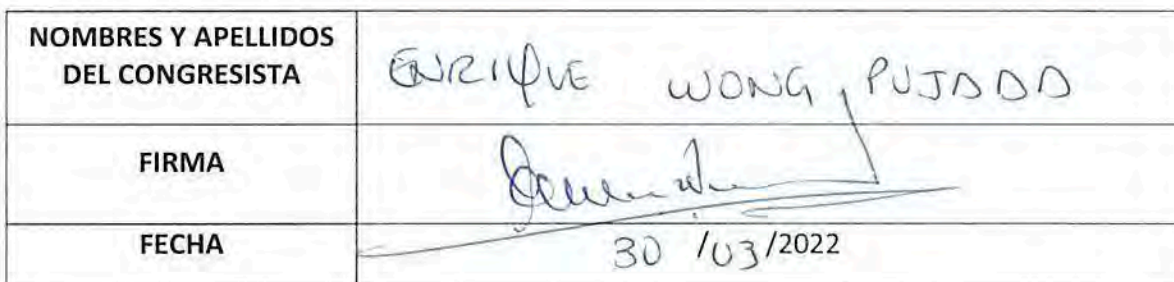 NOMBRES Y APELLIDOS
DEL CONGRESISTA
ENRIQUE WONG PUJADA
FIRMA
FECHA
30 /03/2022